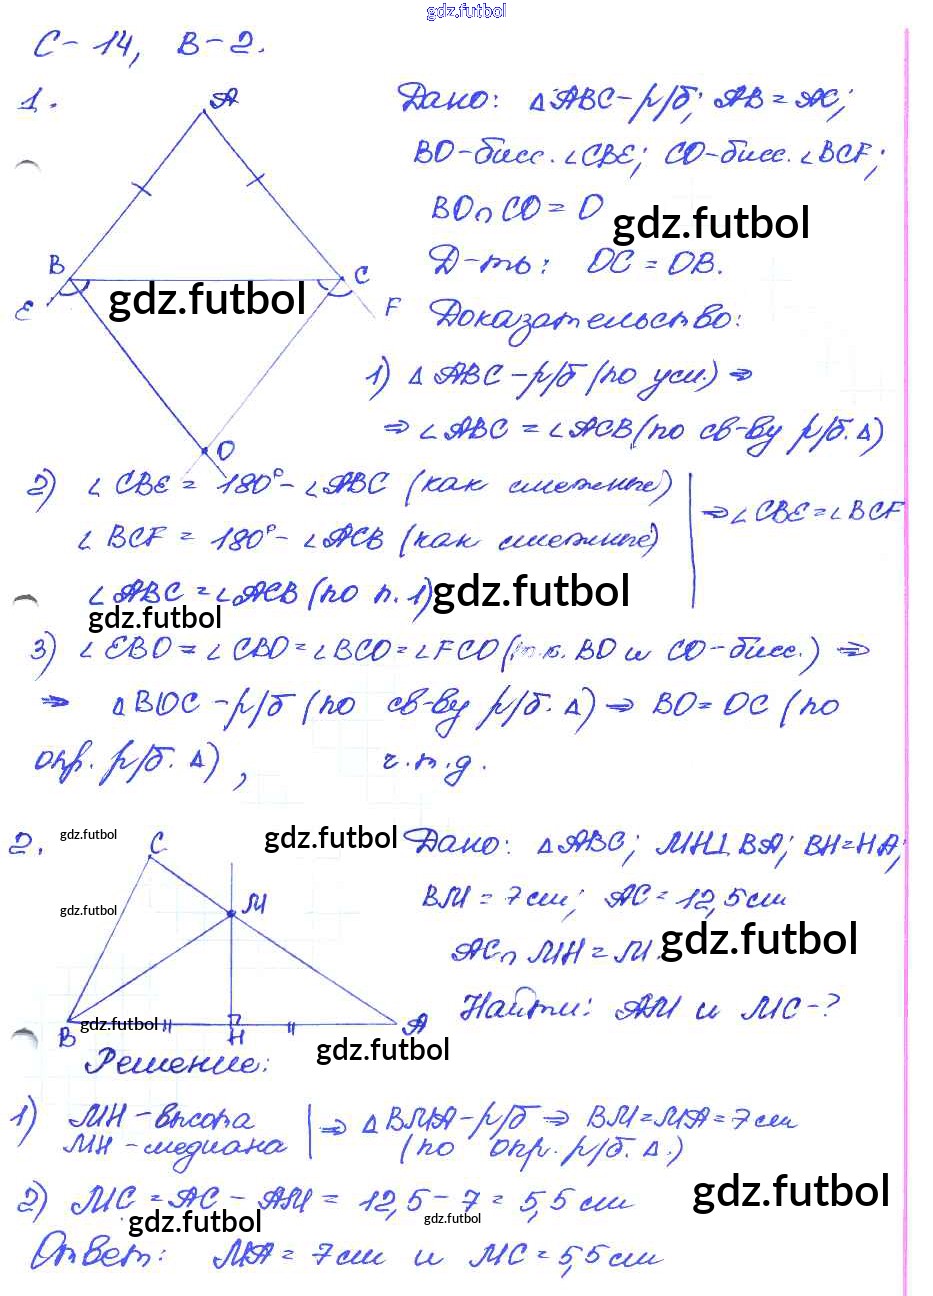 gdz.futbol
С-14, В-2.
1.
A
B
C
E
F
O
gdz.futbol
Дано: △ABC-р/б; AB=AC;
BO-бисс.∠CBE; CO-бисс.∠BCF;
BO∩CO=O
gdz.futbol
Д-ть: OC=OB.
Доказательство:
1) △ABC-р/б (по усл.) ⇒
⇒ ∠ABC = ∠ACB (по св-ву р/б.△)
2) ∠CBE = 180°-∠ABC (как смежные)
∠BCF = 180°-∠ACB (как смежные)
⇒∠CBE=∠BCF
∠ABC =∠ACB (по п.1)
gdz.futbol
gdz.futbol
3) ∠EBO=∠CBO=∠BCO=∠FCO (т.к. BO и CO-бисс.) ⇒
⇒ △BOC-р/б (по св-ву р/б. △) ⇒ BO=OC (по
опр. р/б. △), ч.т.д.
2.
gdz.futbol
C
gdz.futbol
gdz.futbol
M
B
gdz.futbol
H
A
gdz.futbol
Дано: △ABC; MH⊥BA; BH=HA;
BM=7см; AC=12,5см
AC∩MH=M.
gdz.futbol
Найти: AM и MC-?
Решение:
1) MH-высота
MH-медиана
⇒ △BMA-р/б ⇒ BM=MA=7см
(по опр. р/б. △.)
2) MC = AC - AM = 12,5-7=5,5 см
gdz.futbol
gdz.futbol
gdz.futbol
Ответ: MA=7см и MC=5,5см